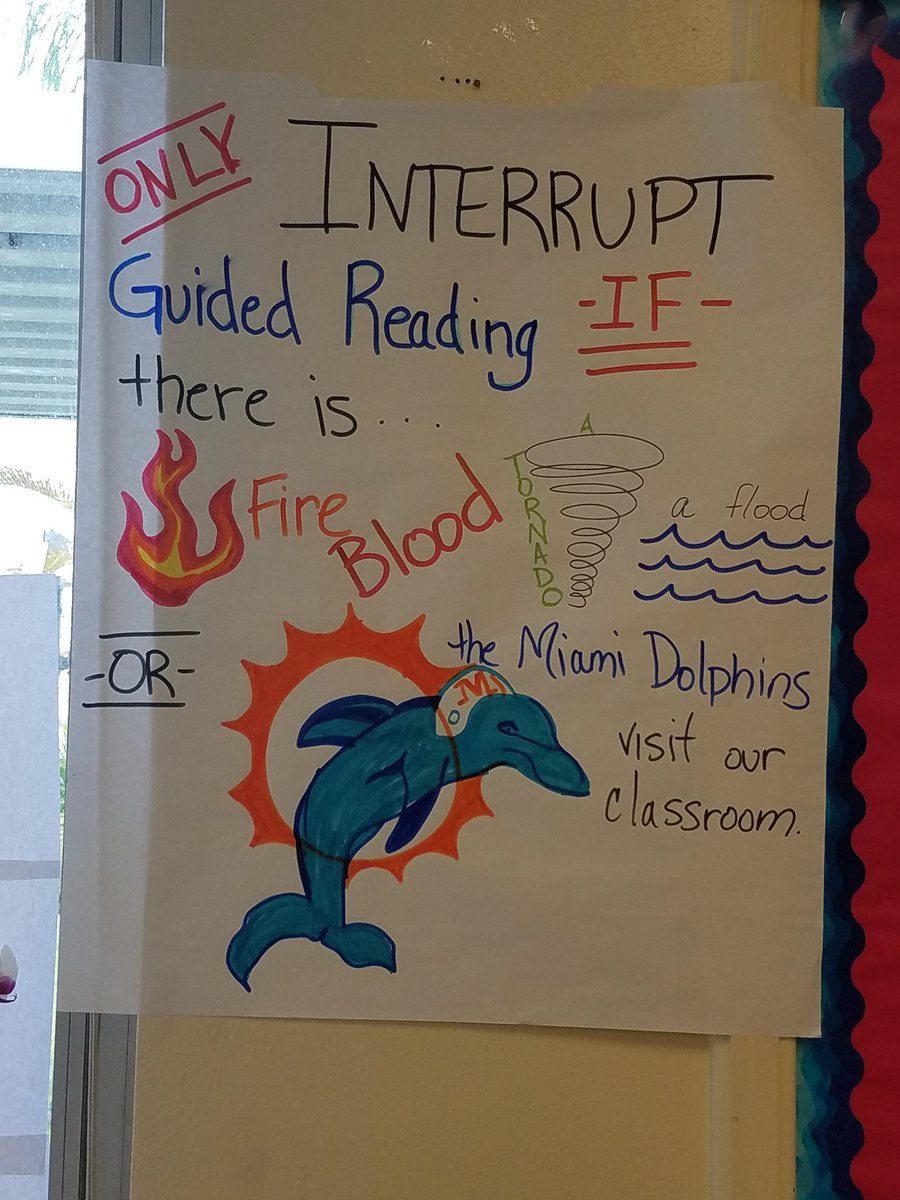 ONLY INTERRUPT
Guided Reading -IF-
there is...
Fire
Blood
A TORNADO
a flood
-OR-
the Miami Dolphins
M
visit our
classroom.